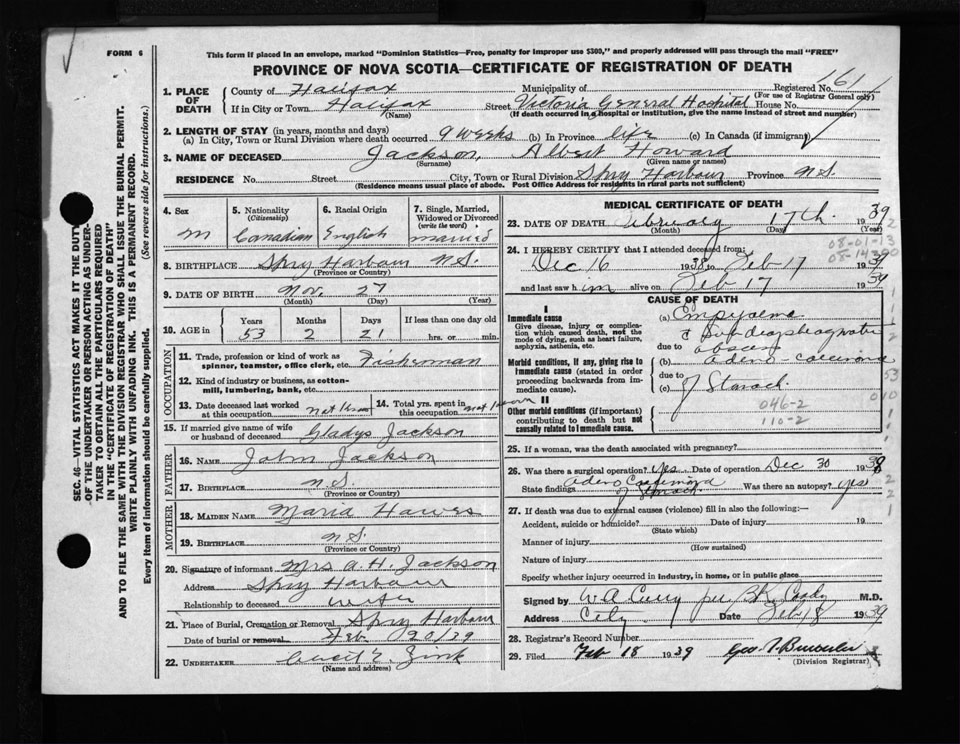 FORM 6
This form if placed in an envelope, marked "Dominion Statistics—Free, penalty for improper use $300," and properly addressed will pass through the mail "FREE"
PROVINCE OF NOVA SCOTIA—CERTIFICATE OF REGISTRATION OF DEATH
SEC. 46—VITAL STATISTICS ACT MAKES IT THE DUTY
OF THE UNDERTAKER OR PERSON ACTING AS UNDER-
TAKER TO OBTAIN ALL THE PARTICULARS REQUIRED
IN THE "CERTIFICATE OF REGISTRATION OF DEATH"
AND TO FILE THE SAME WITH THE DIVISION REGISTRAR WHO SHALL ISSUE THE BURIAL PERMIT.
WRITE PLAINLY WITH UNFADING INK. THIS IS A PERMANENT RECORD.
Every item of information should be carefully supplied. (See reverse side for instructions.)
1. PLACE OF DEATH
County of Halifax Municipality of Registered No. 161
(For use of Registrar General only)
If in City or Town Halifax Street Victoria General Hospital House No.
(Name) (If death occurred in a hospital or institution, give the name instead of street and number)
2. LENGTH OF STAY (in years, months and days)
(a) In City, Town or Rural Division where death occurred 9 weeks (b) In Province life (c) In Canada (if immigrant)
3. NAME OF DECEASED Jackson, Albert Howard
(Surname) (Given name or names)
RESIDENCE No. Street City, Town or Rural Division Spry Harbour Province N.S.
(Residence means usual place of abode. Post Office Address for residents in rural parts not sufficient)
4. Sex
M
5. Nationality
(Citizenship)
Canadian
6. Racial Origin
English
7. Single, Married, Widowed or Divorced
(write the word)
married
8. BIRTHPLACE Spry Harbour N.S.
(Province or Country)
9. DATE OF BIRTH Nov. 27
(Month) (Day) (Year)
10. AGE in
Years Months Days If less than one day old
53 2 21 hrs. or min.
OCCUPATION
11. Trade, profession or kind of work as
spinner, teamster, office clerk, etc. Fisherman
12. Kind of industry or business, as cotton-
mill, lumbering, bank, etc.
13. Date deceased last worked
at this occupation not known
14. Total yrs. spent in
this occupation not known
15. If married give name of wife
or husband of deceased Gladys Jackson
FATHER
16. Name John Jackson
17. Birthplace N.S.
(Province or Country)
MOTHER
18. Maiden Name Maria Hawes
19. Birthplace N.S.
(Province or Country)
20. Signature of informant Mrs A. H. Jackson
Address Spry Harbour
Relationship to deceased
21. Place of Burial, Cremation or Removal Spry Harbour
Date of burial or removal Feb. 20/39
22. UNDERTAKER Cecil E. Zink
(Name and address)
MEDICAL CERTIFICATE OF DEATH
23. DATE OF DEATH February 17th. 1939
(Month) (Day) (Year)
24. I HEREBY CERTIFY that I attended deceased from:
Dec 16 1938 to Feb 17 1939
and last saw him alive on Feb 17 1939
08-01-13
CAUSE OF DEATH
Immediate cause
Give disease, injury or complica-
tion which caused death, not the
mode of dying, such as heart failure,
asphyxia, asthenia, etc.
(a) Empyema
due to
abscess
Morbid conditions, if any, giving rise to
immediate cause (stated in order
proceeding backwards from im-
mediate cause).
(b)
due to
(c) of Stomach
II
Other morbid conditions (if important)
contributing to death but not
causally related to immediate cause.
046-2
110-2
25. If a woman, was the death associated with pregnancy?
26. Was there a surgical operation? yes. Date of operation Dec 30 1938
State findings of Stomach Was there an autopsy? yes
27. If death was due to external causes (violence) fill in also the following:—
Accident, suicide or homicide? Date of injury 19
(State which)
Manner of injury
(How sustained)
Nature of injury
Specify whether injury occurred in industry, in home, or in public place
Signed by W A Curry per M.D.
Address City Date Feb 18 1939
28. Registrar's Record Number
29. Filed Feb 18 1939 Geo.
(Division Registrar)